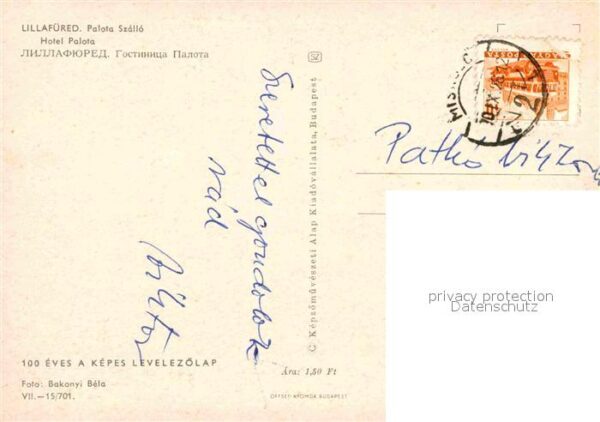 LILLAFÜRED. Palota Szálló
Hotel Palota
ЛИЛЛАФЮРЕД. Гостиница Палота
Szeretettel gondolok
rád
100 ÉVES A KÉPES LEVELEZŐLAP
Foto: Bakonyi Béla
VII.—15/701.
SZ
© Képzőművészeti Alap Kiadóvállalata, Budapest
Ára: 1,50 Ft
OFFSET-NYOMDA BUDAPEST
MAGYAR POSTA
MISKOLC
Patkó
privacy protection
Datenschutz